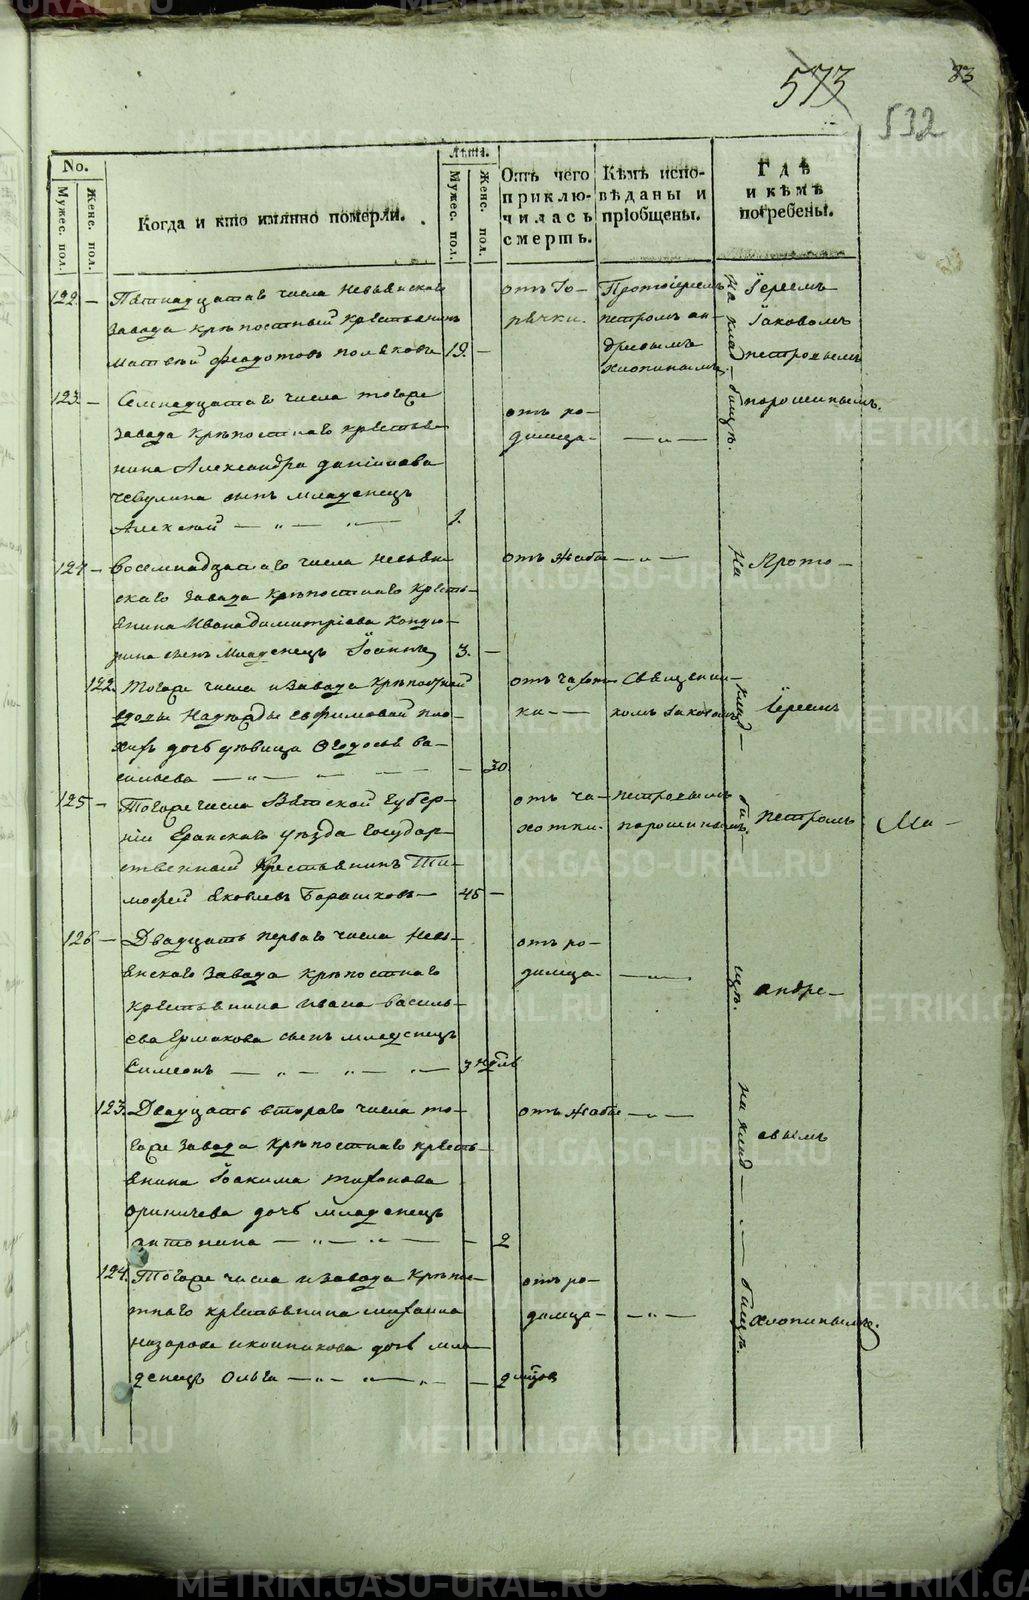 573
83
532
No.
Мужес. пол.
Женс. пол.
Когда и кто имянно померли.
Лѣта.
Мужес. пол.
Женс. пол.
Отъ чего
приклю-
чилась
смерть.
Кѣмъ испо-
вѣданы и
пріобщены.
Гдѣ
и кѣмъ
погребены.
122 — Пятнадцатаго числа Невьянскаго
завода крѣпостный крестьянинъ
Матвѣй Федотовъ Поляковъ 19. —
отъ го-
рячки.
Протоіереемъ
Петромъ Ан-
древымъ
Хлопинымъ
На клад-
бищѣ.
Іереемъ
Іаковомъ
Петровымъ
Порошинымъ.
123 — Семнадцатаго числа тогоже
завода крѣпостнаго крестья-
нина Александра Даніилова
Чевулина сынъ младенецъ
Алексѣй — „ — „ — 1.
отъ ро-
димца — — „ —
124 — Восемнадцатаго числа Невьян-
скаго завода крѣпостнаго кресть-
янина Ивана Димитріева Кондю-
рина сынъ младенецъ Іоаннъ 3. —
отъ жабы — „ —
На
Прото-
122. Тогоже числа и завода крѣпостной
вдовы Надежды Ефимовой Пло-
хихъ дочь дѣвица Ѳедосья Ва-
сильева — „ — — 30.
отъ чахот-
ки — —
Священни-
комъ Іаковомъ
клад —
Іереемъ
125 — Тогоже числа Вятской губер-
ніи Яранскаго уѣзда государ-
ственный крестьянинъ Ти-
моѳей Яковлевъ Барашковъ — 45 —
отъ ча-
хотки.
Петровымъ
Порошинымъ.
би —
Петромъ
Ма —
126 — Двадцать перваго числа Невь-
янскаго завода крѣпостнаго
крестьянина Ивана Василь-
ева Ермакова сынъ младенецъ
Симеонъ — „ — „ — „ — 3 ндль
отъ ро-
димца — — „ —
щѣ.
Андре —
123. Двадцать втораго числа то-
гоже завода крѣпостнаго кресть-
янина Іоакима Тихонова
Ориничева дочь младенецъ
Антонина — „ — „ — — 2
отъ жабы — „ —
на клад —
евымъ
124. Тогоже числа и завода крѣпос-
тнаго крестьянина Михаила
Назарова Иконникова дочь мла-
денецъ Ольга — „ — „ — „ — 2 мцов
отъ ро-
димца — — „ —
бищѣ.
Хлопинымъ.
METRIKI.GASO-URAL.RU